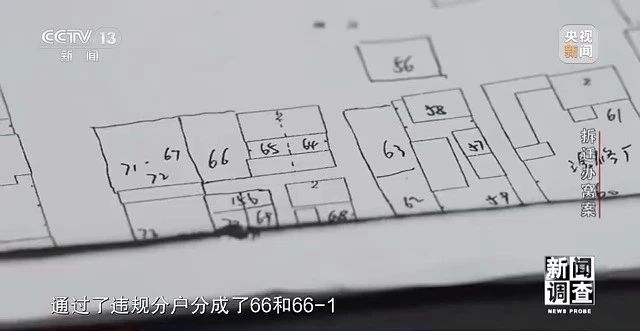 CCTV 13
新闻
央视
新闻
56
58
61
67
71
72
66
65
64
63
57
146
69
68
62
59
拆迁办窝案
通过了违规分户分成了66和66-1
新闻
调查
NEWS PROBE